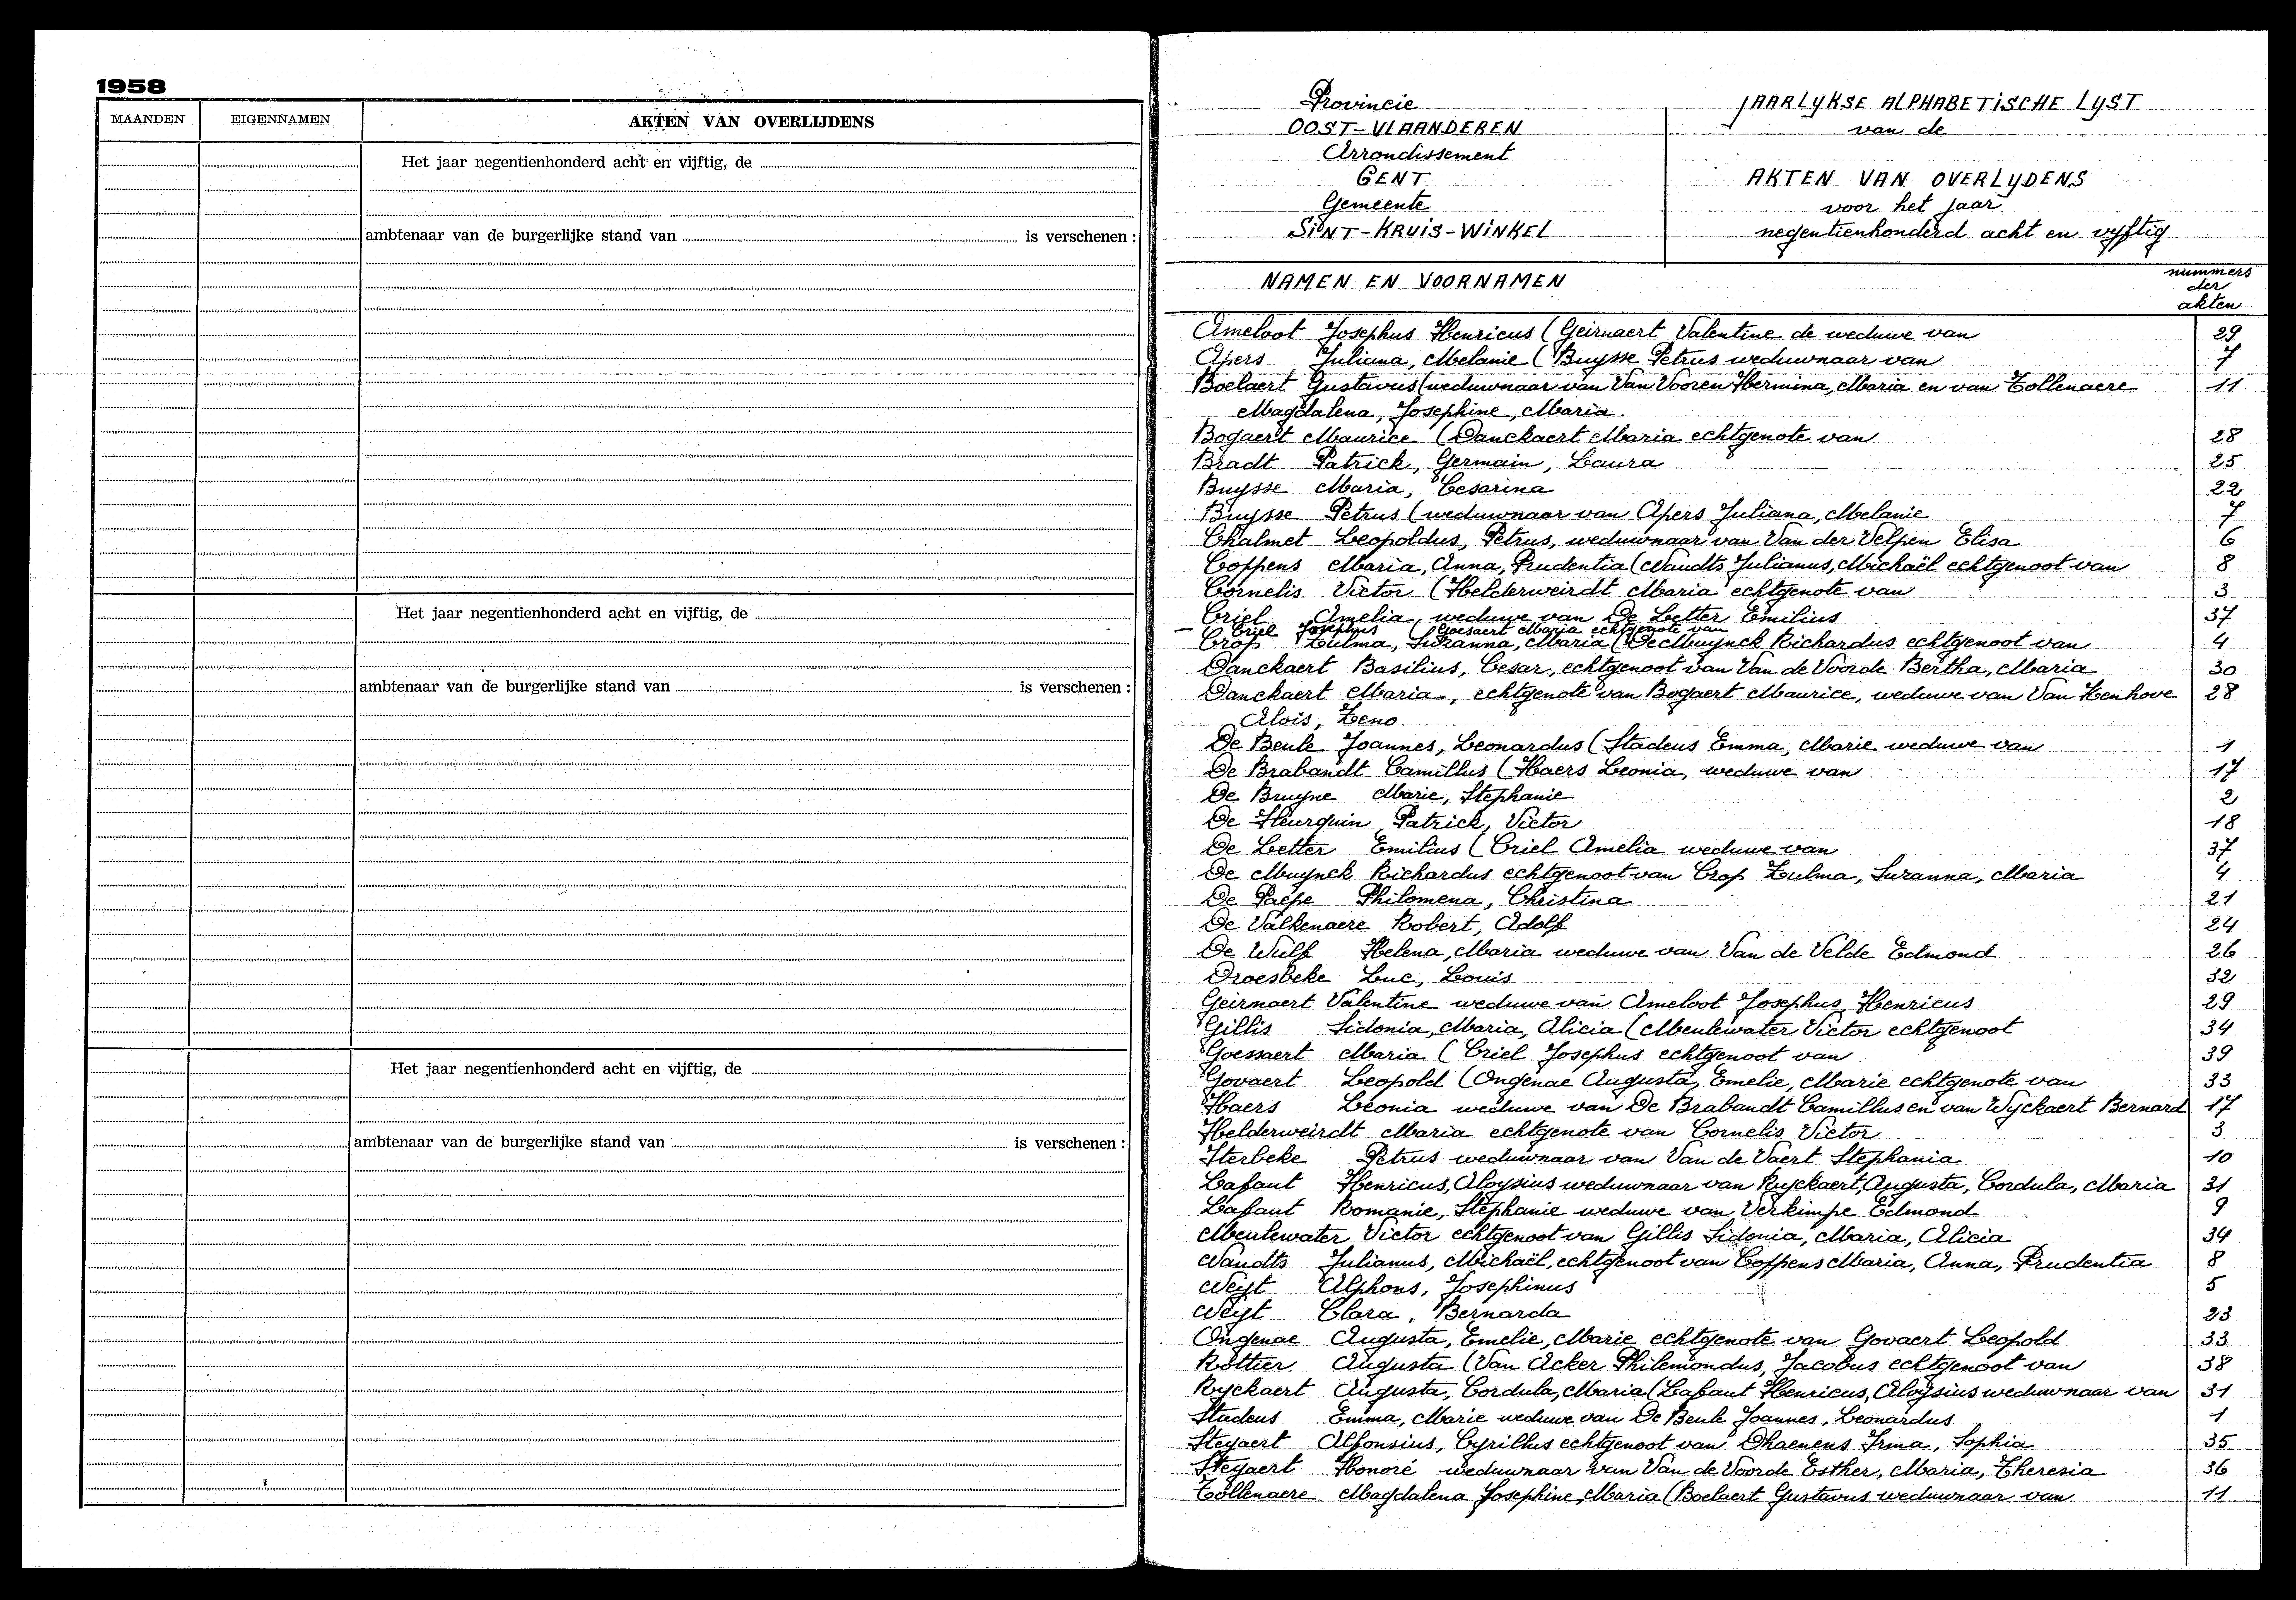 1958
MAANDEN EIGENNAMEN AKTEN VAN OVERLIJDENS
Het jaar negentienhonderd acht en vijftig, de
ambtenaar van de burgerlijke stand van is verschenen :
Het jaar negentienhonderd acht en vijftig, de
ambtenaar van de burgerlijke stand van is verschenen :
Het jaar negentienhonderd acht en vijftig, de
ambtenaar van de burgerlijke stand van is verschenen :
Provincie
OOST-VLAANDEREN
Arrondissement
GENT
Gemeente
SiNT-KRUiS-WiNKEL
jAARLyKSE ALPHABETiSCHE LyST
van de
AKTEN VAN OVERLyDENS
voor het jaar
negentienhonderd acht en vyftig
NAMEN EN VOORNAMEN
nummers
der
akten
Ameloot Josephus Henricus (Geirnaert Valentine de weduwe van 29
Apers Juliana, Melanie (Buysse Petrus weduwnaar van 7
Boelaert Gustavus (weduwnaar van Van Vooren Hermina, Maria en van Tollenaere 11
Magdalena, Josephine, Maria.
Bogaert Maurice (Danckaert Maria echtgenote van 28
Bradt Patrick, Germain, Laura 25
Buysse Maria, Cesarina 22
Buysse Petrus (weduwnaar van Apers Juliana, Melanie 7
Chalmet Leopoldus, Petrus, weduwnaar van Van der Velpen Elisa 6
Coppens Maria, Anna, Prudentia (Naudts Julianus, Michaël echtgenoot van 8
Cornelis Victor (Helderweirdt Maria echtgenote van 3
Criel Amelia, weduwe van De Letter Emilius 37
– Criel Josephus (Goesaert Maria echtgenote van
Crop Zulma, Suzanna, Maria (De Muynck Richardus echtgenoot van 4
Danckaert Basilius, Cesar, echtgenoot van Van de Voorde Bertha, Maria 30
Danckaert Maria, echtgenote van Bogaert Maurice, weduwe van Van Henhove 28
Alois, Zeno
De Beule Joannes, Leonardus (Stadeus Emma, Marie weduwe van 1
De Brabandt Camillus (Haers Leonia, weduwe van 17
De Bruyne Marie, Stephanie 2
De Heurquin Patrick, Victor 18
De Letter Emilius (Criel Amelia weduwe van 37
De Muynck Richardus echtgenoot van Crop Zulma, Suzanna, Maria 4
De Paepe Philomena, Christina 21
De Valkenaere Robert, Adolf 24
De Wulf Helena, Maria weduwe van Van de Velde Edmond 26
Droesbeke Luc, Louis 32
Geirnaert Valentine weduwe van Ameloot Josephus, Henricus 29
Gillis Sidonia, Maria, Alicia (Meulewater Victor echtgenoot 34
Goessaert Maria (Criel Josephus echtgenoot van 39
Govaert Leopold (Ongenae Augusta, Emelie, Marie echtgenote van 33
Haers Leonia weduwe van De Brabandt Camillus en van Wyckaert Bernard 17
Helderweirdt Maria echtgenote van Cornelis Victor 3
Sterbeke Petrus weduwnaar van Van de Vaert Stephania 10
Lafaut Henricus, Aloysius weduwnaar van Ryckaert, Augusta, Cordula, Maria 31
Lafaut Romanie, Stephanie weduwe van Verkimpe Edmond 9
Meulewater Victor echtgenoot van Gillis Sidonia, Maria, Alicia 34
Naudts Julianus, Michaël, echtgenoot van Coppens Maria, Anna, Prudentia 8
Neyt Alphons, Josephinus 5
Neyt Clara, Bernarda 23
Ongenae Augusta, Emelie, Marie echtgenote van Govaert Leopold 33
Rottier Augusta (Van Acker Philemondus, Jacobus echtgenoot van 38
Ryckaert Augusta, Cordula, Maria (Lafaut Henricus, Aloysius weduwnaar van 31
Stadeus Emma, Marie weduwe van De Beule Joannes, Leonardus 1
Steyaert Alfonsius, Cyrillus echtgenoot van Dhaenens Irma, Sophia 35
Steyaert Honoré weduwnaar van Van de Voorde Esther, Maria, Theresia 36
Tollenaere Magdalena Josephine, Maria (Boelaert Gustavus weduwnaar van 11